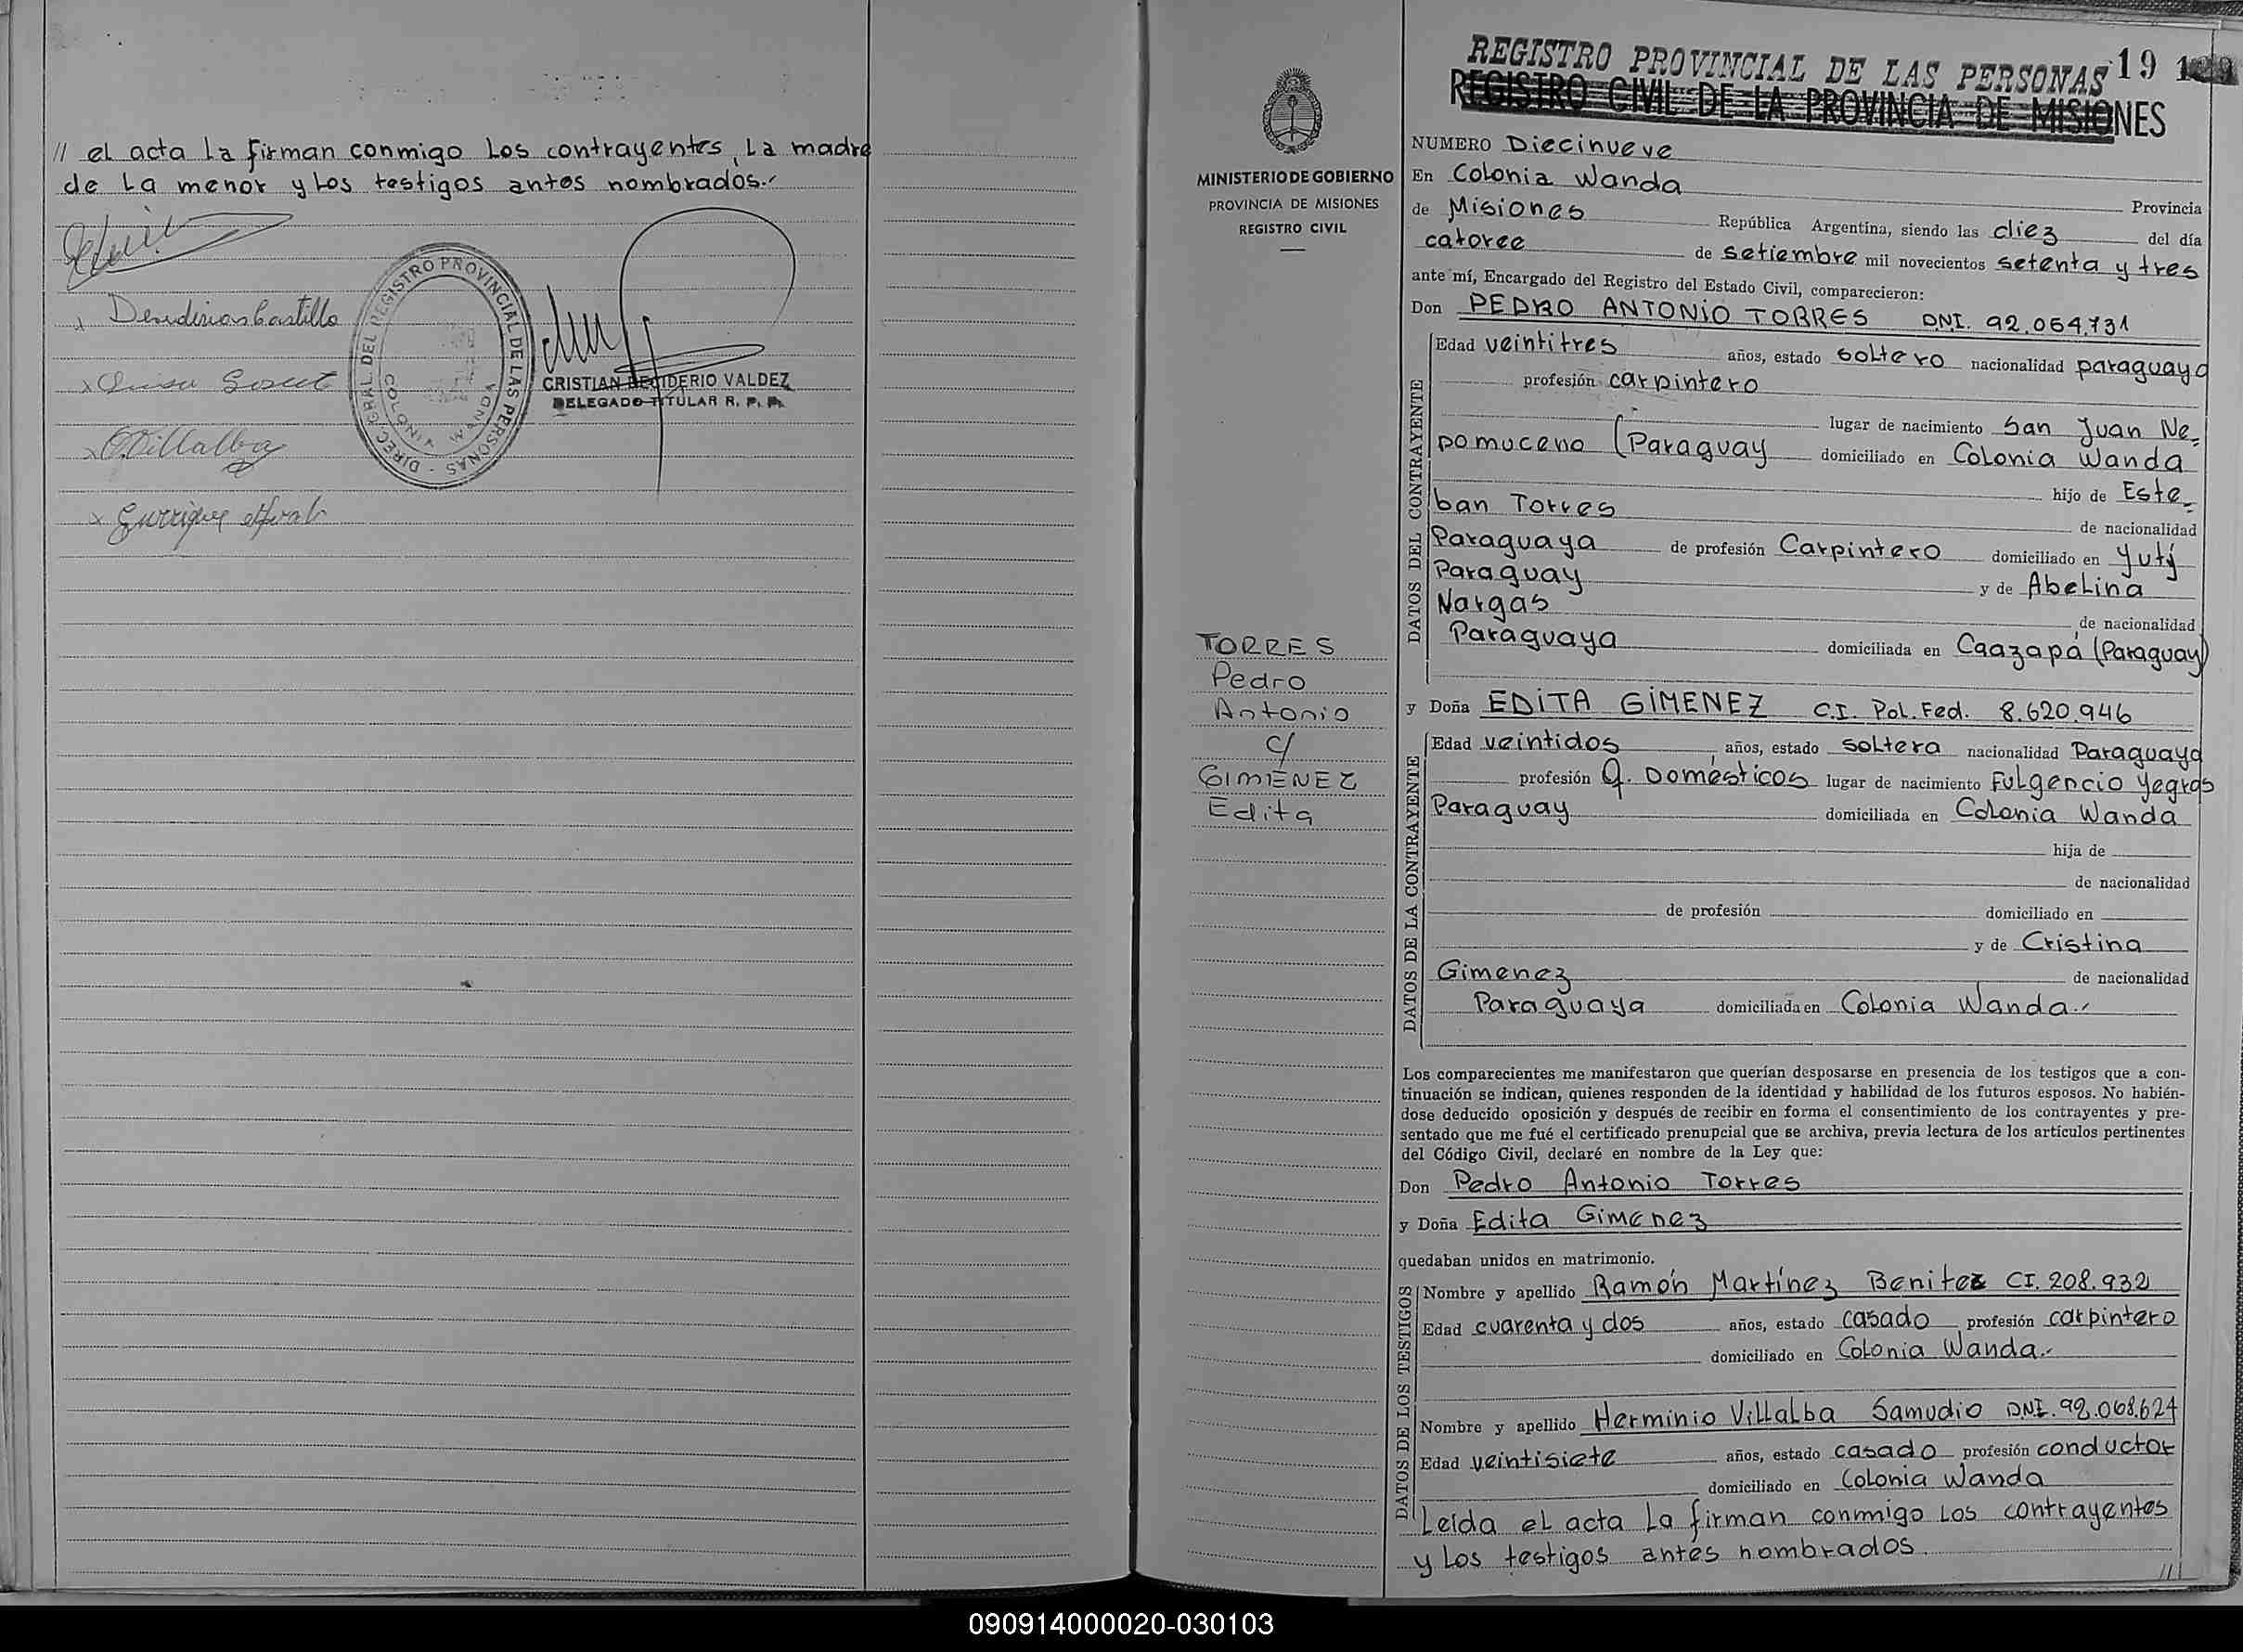 // el acta la firman conmigo los contrayentes, la madre
de la menor y los testigos antes nombrados.-
Desiderios Castillo
x
DIREC. GRAL DEL REGISTRO PROVINCIAL DE LAS PERSONAS -
COLONIA WANDA
CRISTIAN DECIDERIO VALDEZ
DELEGADO TITULAR R. P. P.
Villalba
x
MINISTERIO DE GOBIERNO
PROVINCIA DE MISIONES
REGISTRO CIVIL
TORRES
Pedro
Antonio
c/
GIMENEZ
Edita
REGISTRO PROVINCIAL DE LAS PERSONAS 19
REGISTRO CIVIL DE LA PROVINCIA DE MISIONES
NUMERO Diecinueve
En Colonia Wanda
Provincia
de Misiones República Argentina, siendo las diez del día
catorce de setiembre mil novecientos setenta y tres
ante mí, Encargado del Registro del Estado Civil, comparecieron:
Don PEDRO ANTONIO TORRES DNI. 92.064.731
DATOS DEL CONTRAYENTE
Edad veintitres años, estado soltero nacionalidad paraguaya
profesión carpintero
lugar de nacimiento San Juan Ne=
pomuceno (Paraguay domiciliado en Colonia Wanda
hijo de Este=
ban Torres
de nacionalidad
Paraguaya de profesión Carpintero domiciliado en Yutý
Paraguay y de Abelina
Vargas
de nacionalidad
Paraguaya domiciliada en Caazapá (Paraguay)
y Doña EDITA GIMENEZ C.I. Pol. Fed. 8.620.946
DATOS DE LA CONTRAYENTE
Edad veintidos años, estado soltera nacionalidad Paraguaya
profesión Q. Domésticos lugar de nacimiento Fulgencio Yegros
Paraguay domiciliada en Colonia Wanda
hija de
de nacionalidad
de profesión domiciliado en
y de Cristina
Gimenez de nacionalidad
Paraguaya domiciliada en Colonia Wanda.-
Los comparecientes me manifestaron que querían desposarse en presencia de los testigos que a con-
tinuación se indican, quienes responden de la identidad y habilidad de los futuros esposos. No habién-
dose deducido oposición y después de recibir en forma el consentimiento de los contrayentes y pre-
sentado que me fué el certificado prenupcial que se archiva, previa lectura de los artículos pertinentes
del Código Civil, declaré en nombre de la Ley que:
Don Pedro Antonio Torres
y Doña Edita Gimenez
quedaban unidos en matrimonio.
DATOS DE LOS TESTIGOS
Nombre y apellido Ramón Martínez Benitez CI. 208.932
Edad cuarenta y dos años, estado casado profesión carpintero
domiciliado en Colonia Wanda.-
Nombre y apellido Herminio Villalba Samudio DNI. 92.068.624
Edad veintisiete años, estado casado profesión conductor
domiciliado en Colonia Wanda
Leída el acta la firman conmigo los contrayentes
y los testigos antes nombrados.
///
090914000020-030103